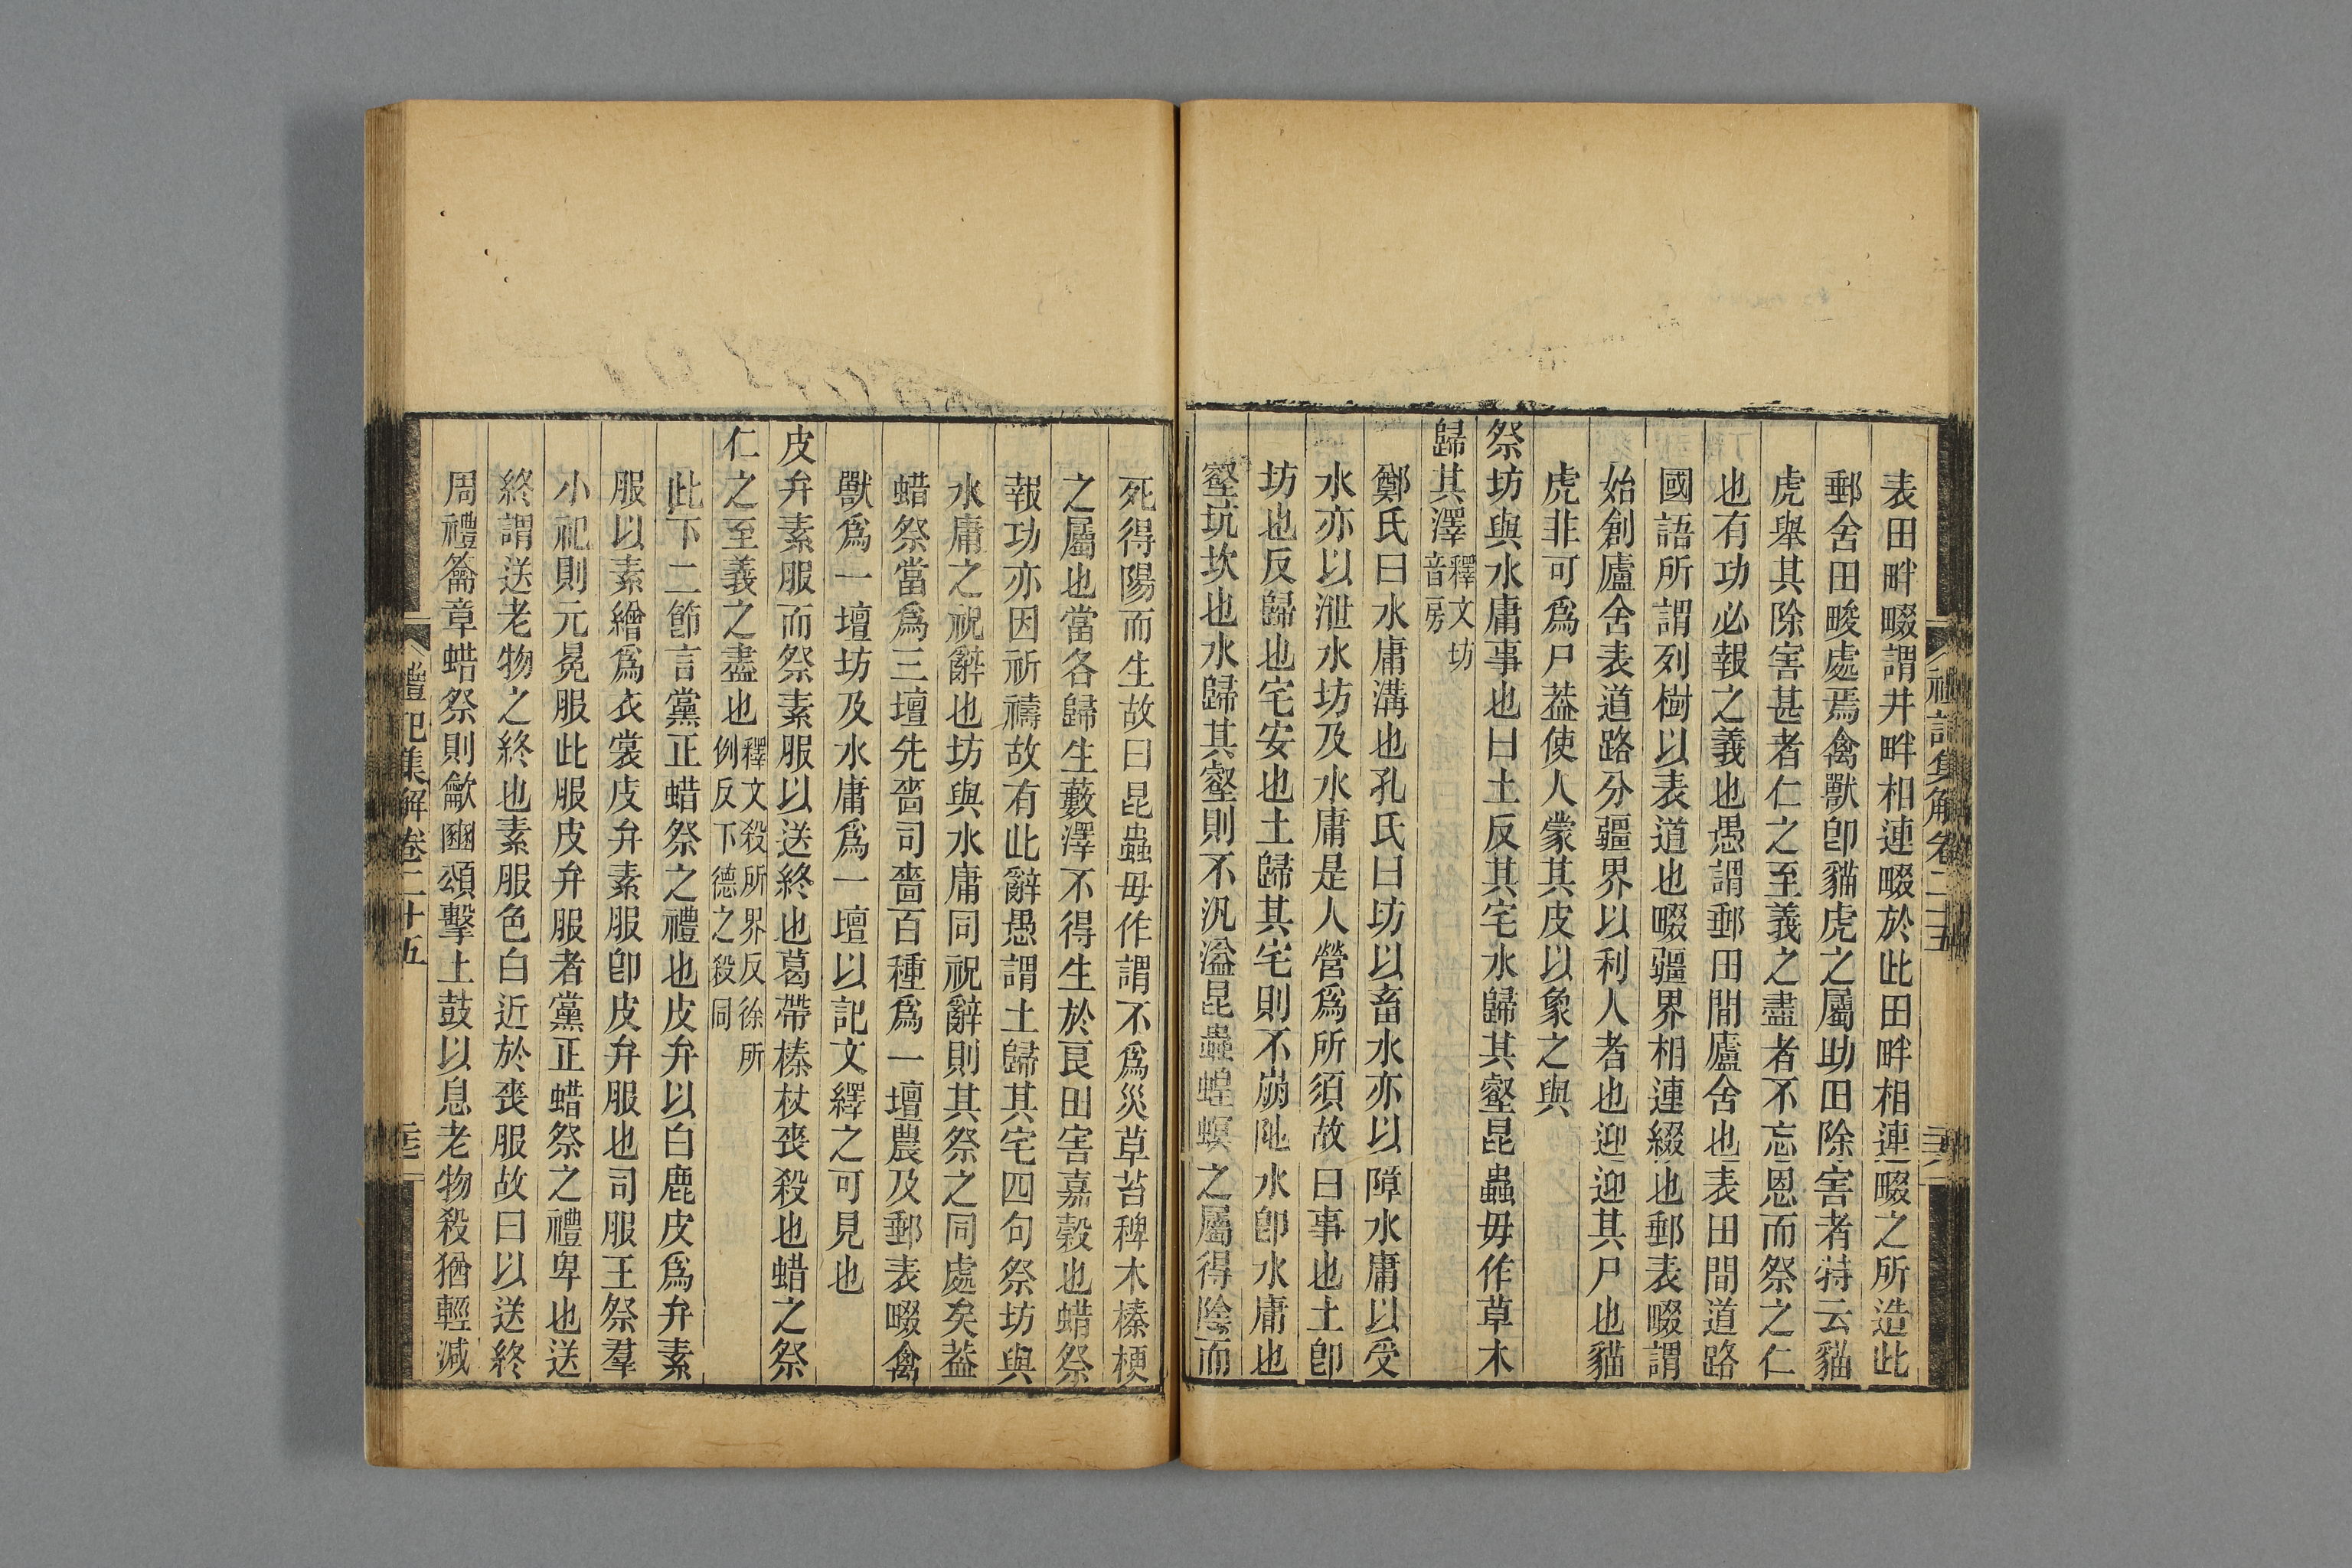 禮記集解卷二十五
表田畔畷謂井畔相連畷於此田畔相連畷之所造此
郵舍田畯處焉禽獸卽貓虎之屬助田除害者特云貓
虎舉其除害甚者仁之至義之盡者不忘恩而祭之仁
也有功必報之義也愚謂郵田閒廬舍也表田閒道路
國語所謂列樹以表道也畷疆界相連綴也郵表畷謂
始創廬舍表道路分疆界以利人者也迎迎其尸也貓
虎非可爲尸葢使人蒙其皮以象之與
祭坊與水庸事也曰土反其宅水歸其壑昆蟲毋作草木
歸其澤釋文坊音房
鄭氏曰水庸溝也孔氏曰坊以畜水亦以障水庸以受
水亦以泄水坊及水庸是人營爲所須故曰事也土卽
坊也反歸也宅安也土歸其宅則不崩阤水卽水庸也
壑坑坎也水歸其壑則不汎溢昆蟲蝗螟之屬得陰而
死得陽而生故曰昆蟲毋作謂不爲災草苔稗木榛梗
之屬也當各歸生藪澤不得生於良田害嘉穀也蜡祭
報功亦因祈禱故有此辭愚謂土歸其宅四句祭坊與
水庸之祝辭也坊與水庸同祝辭則其祭之同處矣葢
蜡祭當爲三壇先嗇司嗇百種爲一壇農及郵表畷禽
獸爲一壇坊及水庸爲一壇以記文繹之可見也
皮弁素服而祭素服以送終也葛帶榛杖喪殺也蜡之祭
仁之至義之盡也釋文殺所界反徐所例反下德之殺同
此下二節言黨正蜡祭之禮也皮弁以白鹿皮爲弁素
服以素繒爲衣裳皮弁素服卽皮弁服也司服王祭羣
小祀則元冕服此服皮弁服者黨正蜡祭之禮卑也送
終謂送老物之終也素服色白近於喪服故曰以送終
周禮籥章蜡祭則龡豳頌擊土鼓以息老物殺猶輕減
禮記集解卷二十五